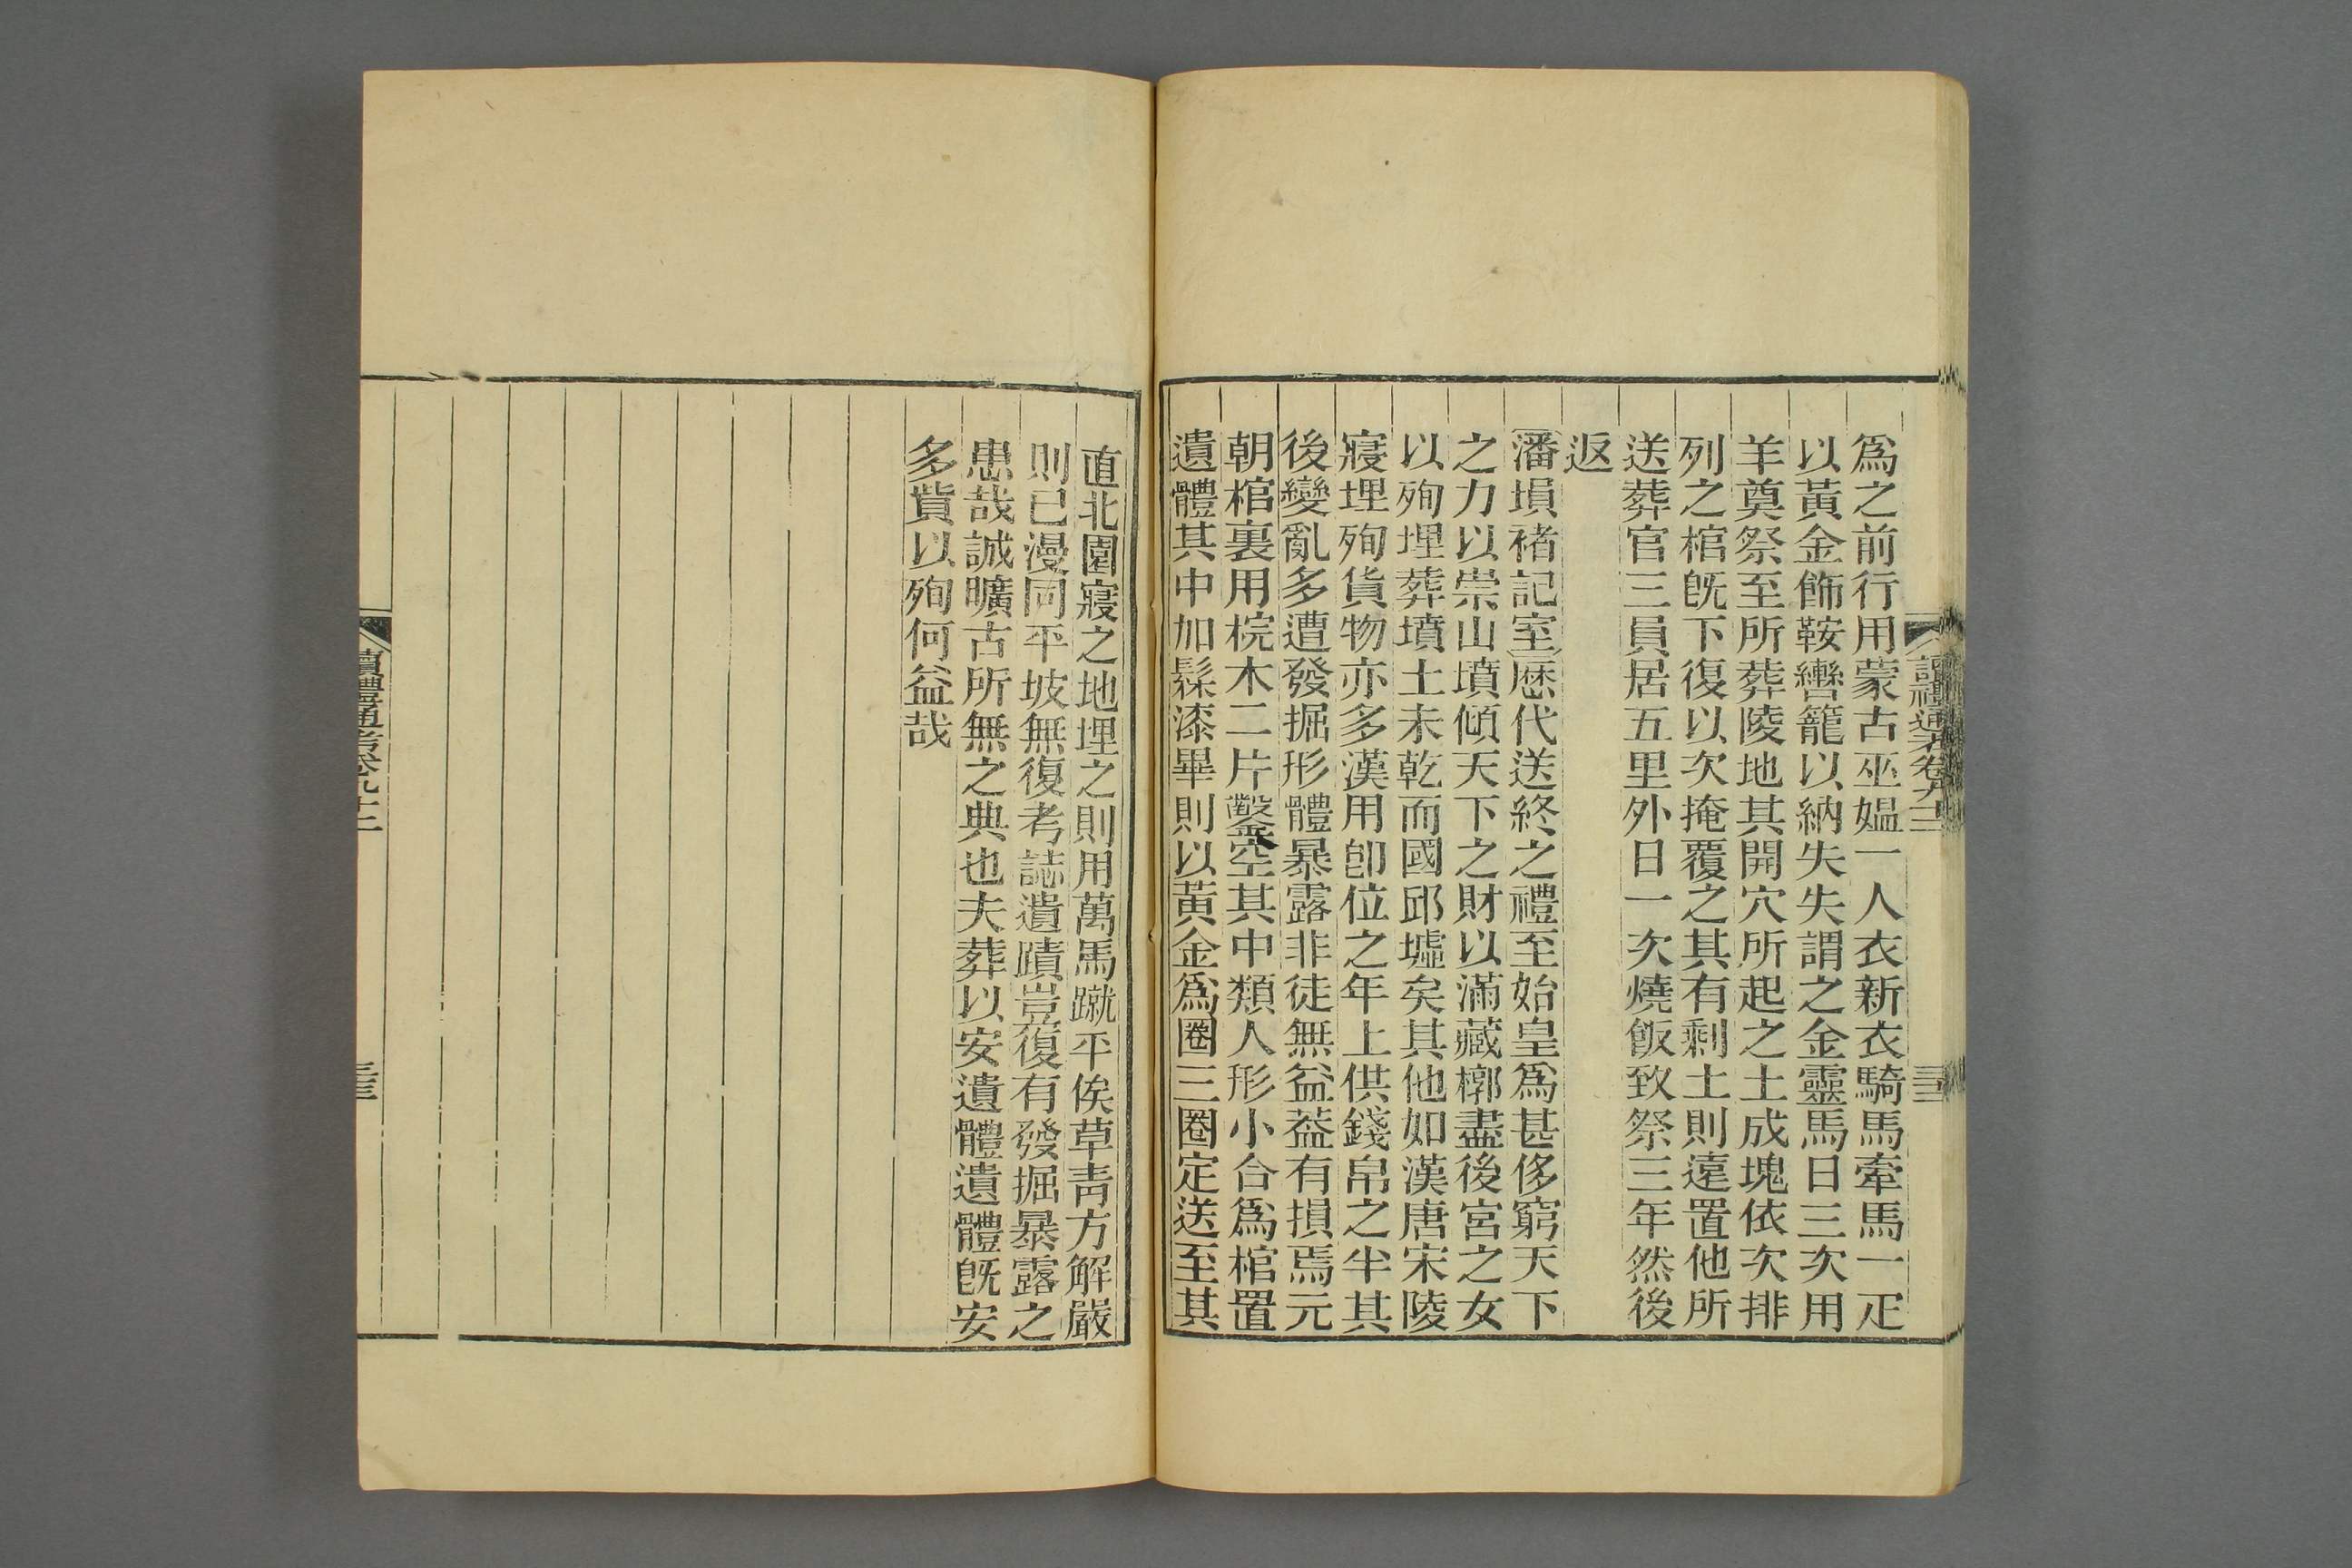 為之前行用蒙古巫媼一人衣新衣騎馬牽馬一疋
以黃金飾鞍轡籠以納失失謂之金靈馬日三次用
羊奠祭至所葬陵地其開穴所起之土成塊依次排
列之棺旣下復以次掩覆之其有剩土則遠置他所
送葬官三員居五里外日一次燒飯致祭三年然後
返
潘塤褚記室歷代送終之禮至始皇為甚侈窮天下
之力以崇山墳傾天下之財以滿藏槨盡後宮之女
以殉埋葬墳土未乾而國邱墟矣其他如漢唐宋陵
寢埋殉貨物亦多漢用卽位之年上供錢帛之半其
後變亂多遭發掘形體暴露非徒無益葢有損焉元
朝棺裏用梡木二片鑿空其中類人形小合為棺置
遺體其中加髹漆畢則以黃金為圈三圈定送至其
直北園寢之地埋之則用萬馬蹴平俟草青方解嚴
則已漫同平坡無復考誌遺蹟豈復有發掘暴露之
患哉誠曠古所無之典也夫葬以安遺體遺體旣安
多貲以殉何益哉
讀禮通考卷九十二